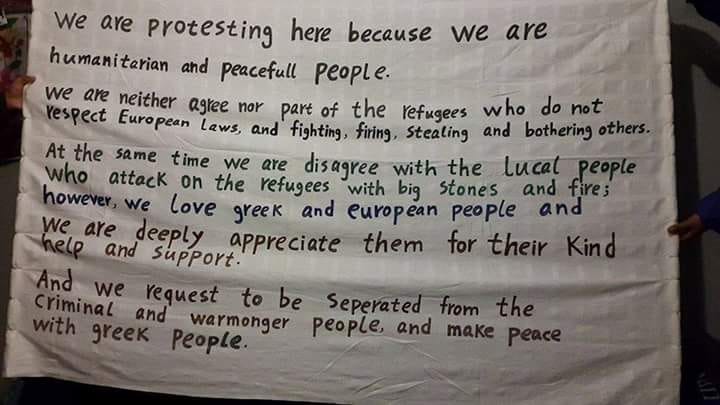 We are protesting here because we are
humanitarian and peacefull people.
We are neither agree nor part of the refugees who do not
respect European Laws, and fighting, firing, Stealing and bothering others.
At the same time we are disagree with the Lucal people
who attack on the refugees with big Stones and fire;
however, we Love greek and european people and
We are deeply appreciate them for their Kind
help and support.
And we request to be Seperated from the
Criminal and warmonger people, and make peace
with greek people.